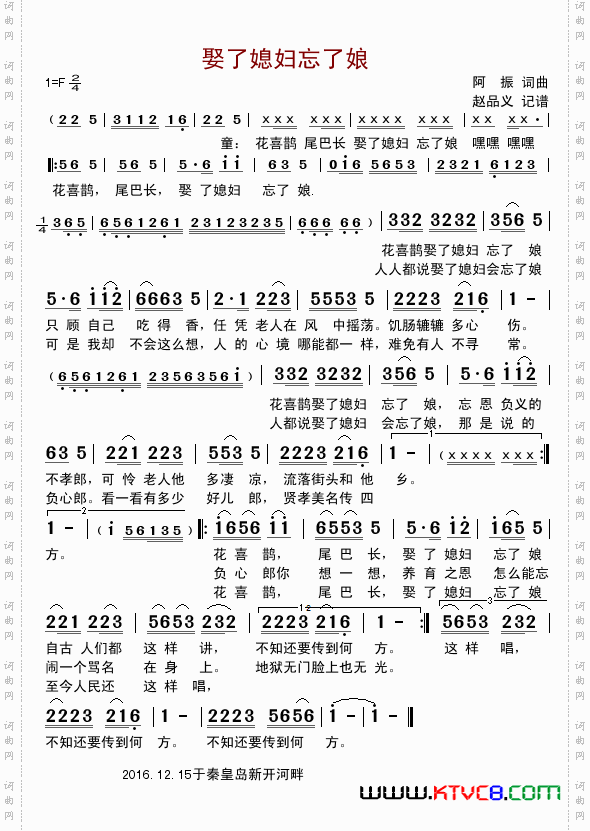 娶了媳妇忘了娘
1=F 2/4
阿 振 词曲
赵品义 记谱
( 2 2 5 | 3 1 1 2 1 6 | 2 2 5 | x x x x x x | x x x x x x x | x x x x ·
童: 花喜鹊 尾巴长 娶了媳妇 忘了娘 嘿嘿 嘿嘿
‖: 5 6 5 | 5 6 5 | 5 · 6 i i | 6 3 5 | 0 i 6 5 6 5 3 | 2 3 2 1 6 1 2 3
花喜鹊, 尾巴长, 娶 了媳妇 忘了娘.
1/4 3 6 5 | 6 5 6 1 2 6 1 2 3 1 2 3 2 3 5 | 6 6 6 6 6 ) | 3 3 2 3 2 3 2 | 3 5 6 5 |
花喜鹊娶了媳妇 忘了 娘
人人都说娶了媳妇会忘了娘
5 · 6 i i 2 | 6 6 6 3 5 | 2 · 1 2 2 3 | 5 5 5 3 5 | 2 2 2 3 2 1 6 | 1 - |
只 顾 自己 吃 得 香, 任 凭 老人在 风 中摇荡。饥肠辘辘 多心 伤。
可 是 我却 不会这么想, 人 的 心 境 哪能都一样, 难免有人 不寻 常。
( 6 5 6 1 2 6 1 2 3 5 6 3 5 6 i ) | 3 3 2 3 2 3 2 | 3 5 6 5 | 5 · 6 i i 2 |
花喜鹊娶了媳妇 忘了 娘, 忘 恩 负义的
人都说娶了媳妇 会忘了 娘, 那 是 说 的
6 3 5 | 2 2 1 2 2 3 | 5 5 3 5 | 2 2 2 3 2 1 6 | 1 - | ( x x x x x x x ) :‖
不孝郎, 可 怜 老人他 多凄 凉, 流落街头和 他 乡。
负心郎。看一看有多少 好儿 郎, 贤孝美名传 四
1 - | ( i 5 6 1 3 5 ) ‖: i 6 5 6 i i | 6 5 5 3 5 | 5 · 6 i 2 | i 6 5 5 |
方。 花 喜 鹊, 尾 巴 长, 娶 了 媳妇 忘了 娘
负 心 郎你 想 一 想, 养 育 之恩 怎么能忘
花 喜 鹊, 尾 巴 长, 娶 了 媳妇 忘了 娘
2 2 1 2 2 3 | 5 6 5 3 2 3 2 | 2 2 2 3 2 1 6 | 1 - :‖ 5 6 5 3 2 3 2 |
自古 人们都 这 样 讲, 不知还要传到何 方。 这 样 唱,
闹一个骂名 在 身 上。 地狱无门脸上也无 光。
至今人民还 这 样 唱,
2 2 2 3 2 1 6 | 1 - | 2 2 2 3 5 6 5 6 | i - | i - ‖
不知还要传到何 方。 不知还要传到何 方。
2016. 12. 15于秦皇岛新开河畔
www.KTVC8.com